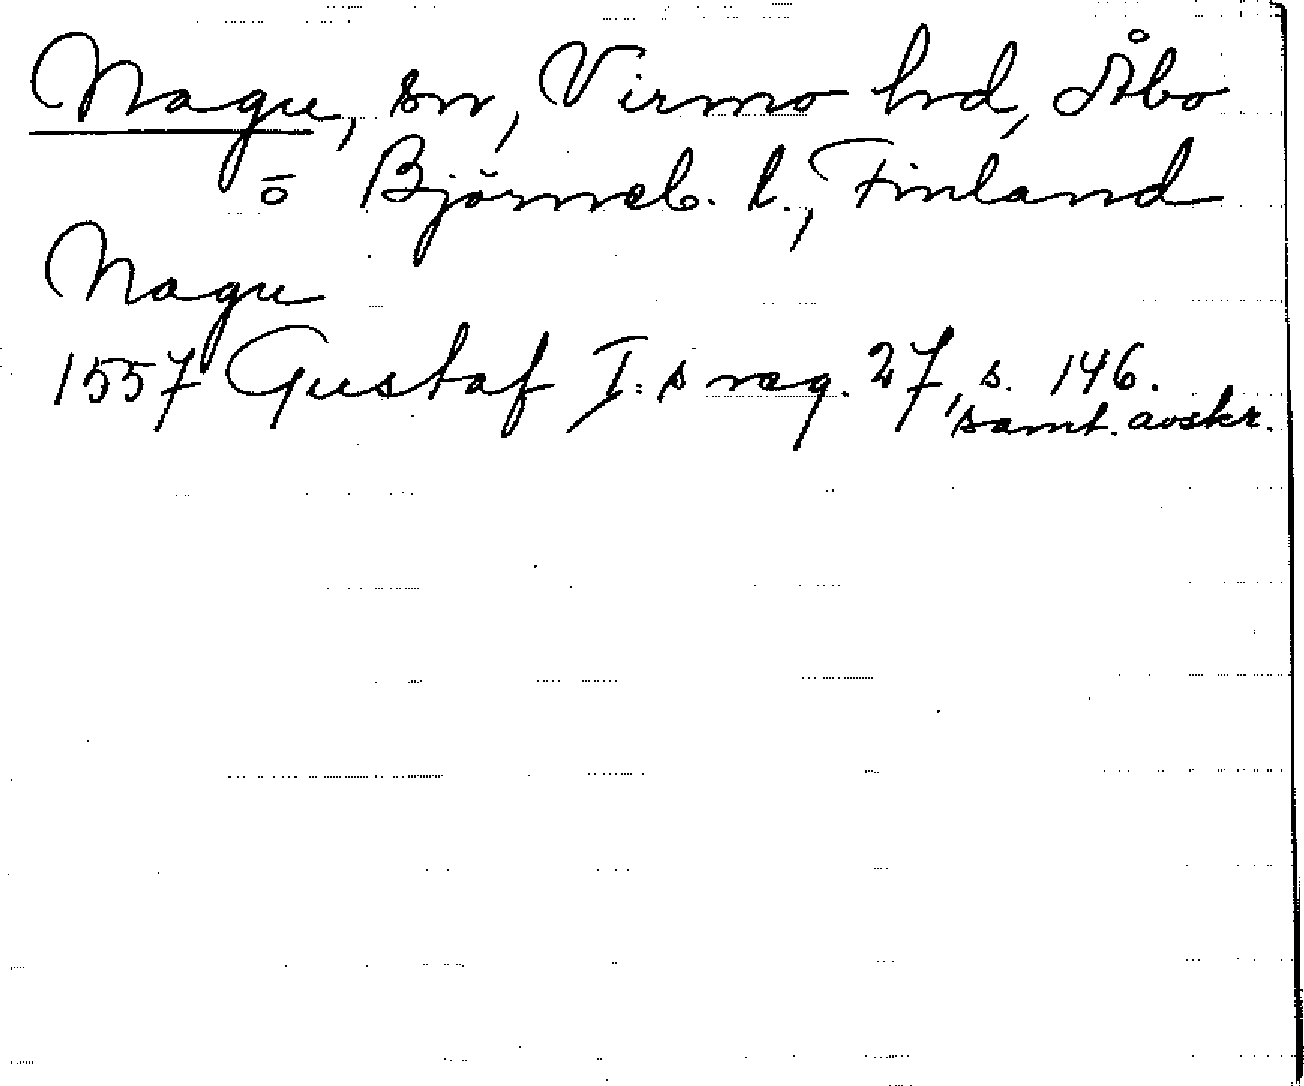 Nagu, sn, Virmo hd, Åbo
o Björneb. l., Finland
Nagu
1557 Gustaf I:s reg. 27, s. 146.
samt. avskr.